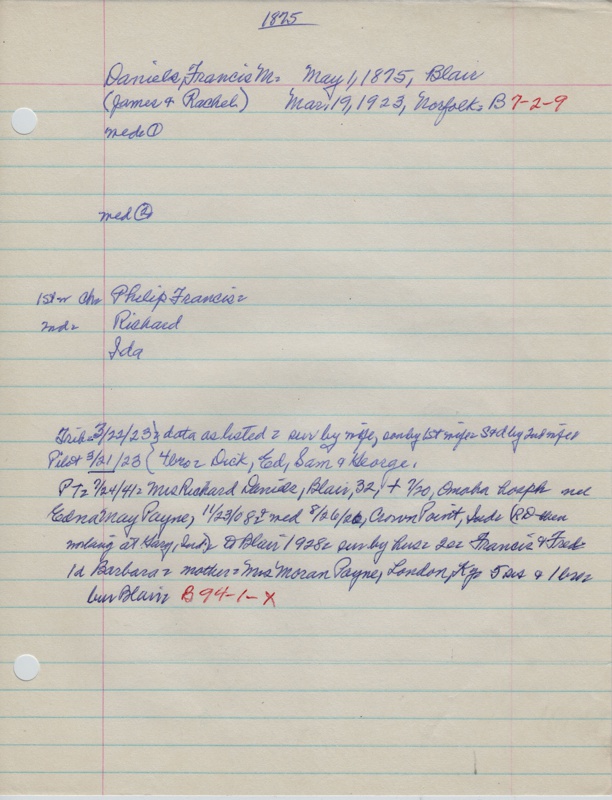 1875
Daniels, Francis M. May 1, 1875, Blair
(James & Rachel) Mar. 19, 1923, Norfolk. B 7-2-9
med. ①
med ②
1st - ch. Philip Francis.
2nd. Richard
Ida
Trib. 3/22/23 } data as listed = sur by wife, son by 1st wife = S & d by 2nd wife
Pilot 3/21/23 { 4 bro = Dick, Ed, Sam & George.
PT = 7/24/41 = Mrs Richard Daniels, Blair, 32, + 7/20, Omaha hosp = nee
Edna May Payne, 11/23/08 = med 8/26/26, Crown Point, Ind = RD then
working at Gary, Ind = to Blair 1928 = sur by hus = 2s = Francis & Fred
1d Barbara = mother = Mrs Moran Payne, London, Ky = 5 sis & 1 bro =
bur Blair = B 94-1-X